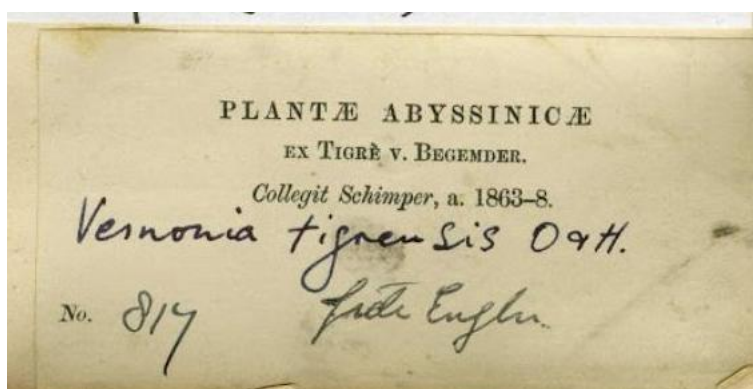 PLANTÆ ABYSSINICÆ
EX TIGRÈ V. BEGEMDER.
Collegit Schimper, a. 1863–8.
Vernonia tigrensis O & H.
No. 817 fide Engler.